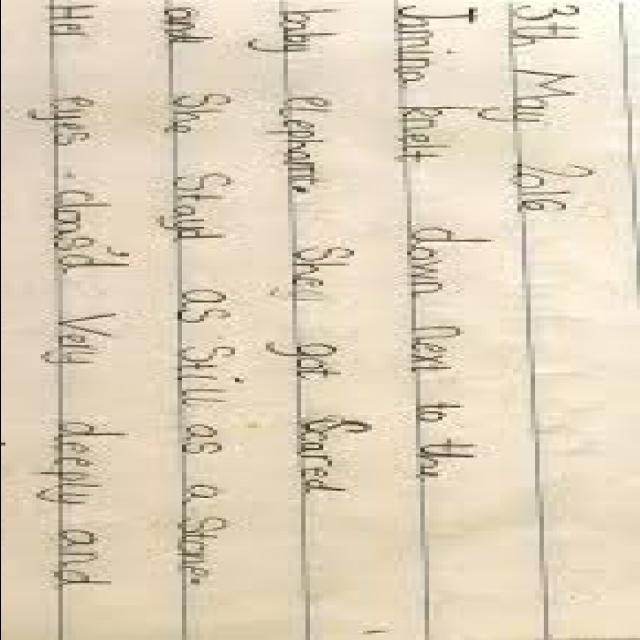 3th May 2016
Jamina knelt down next to the
baby elephant. She got Scared
and She Stayd as Still as a Stone.
Her eyes closed Very deeply and